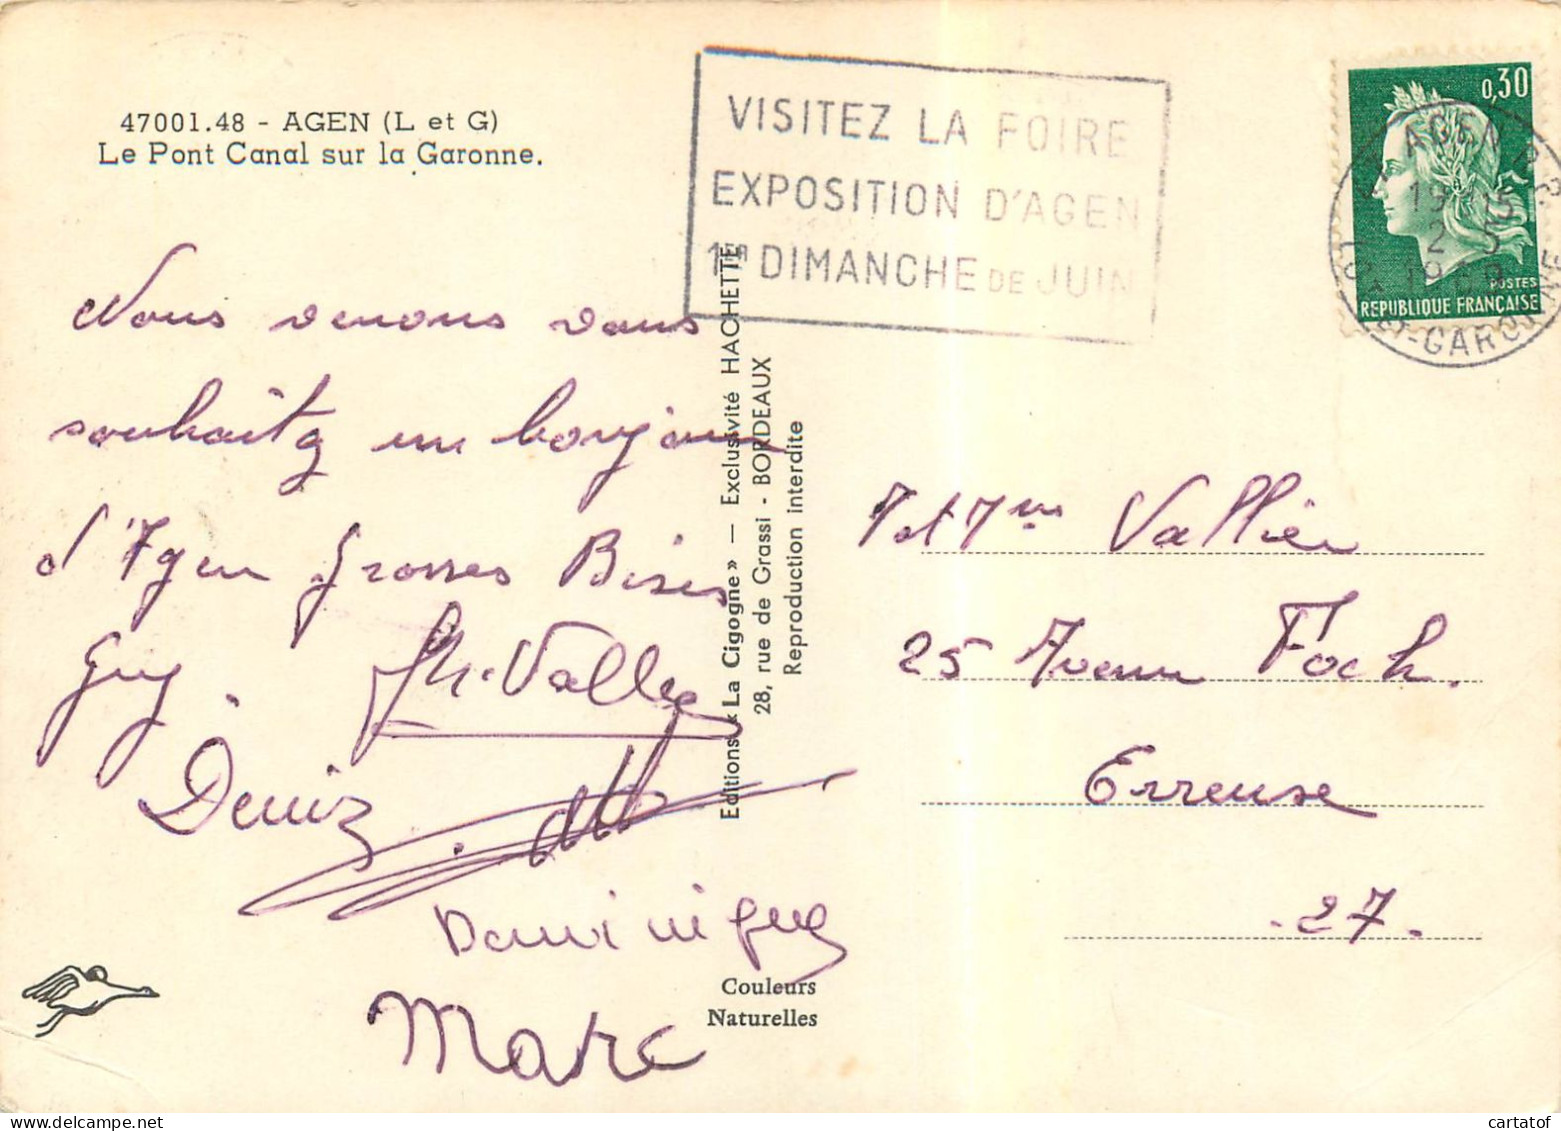 47001.48 - AGEN (L et G)
Le Pont Canal sur la Garonne.
VISITEZ LA FOIRE
EXPOSITION D'AGEN
1er DIMANCHE DE JUIN
0,30
POSTES
REPUBLIQUE FRANÇAISE
AGEN
19 15
2 5
LOT-ET-GARONNE
Nous venons vous
souhaitez un bonjour
d'Agen Grosses Bises
Guy
Denis
Dominique
Marc
Editions « La Cigogne » — Exclusivité HACHETTE
28, rue de Grassi - BORDEAUX
Reproduction interdite
Couleurs
Naturelles
M et Mme Vallier
25 Avenue Foch.
27.
cartatof